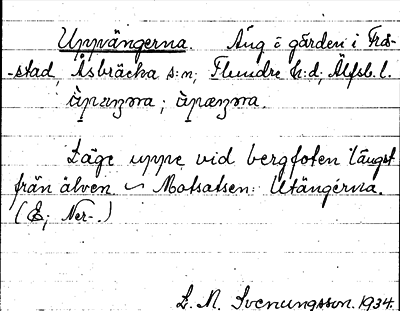 Uppvängerna. Äng å gården i Frå-
-stad, Åsbräcka s:n, Flundre h:d, Älfsb. l.
Läge uppe vid bergfoten längst
från älven ~ Motsatsen: Utängerna.
(E; Ner-.)
L. M. Svenungsson. 1934.